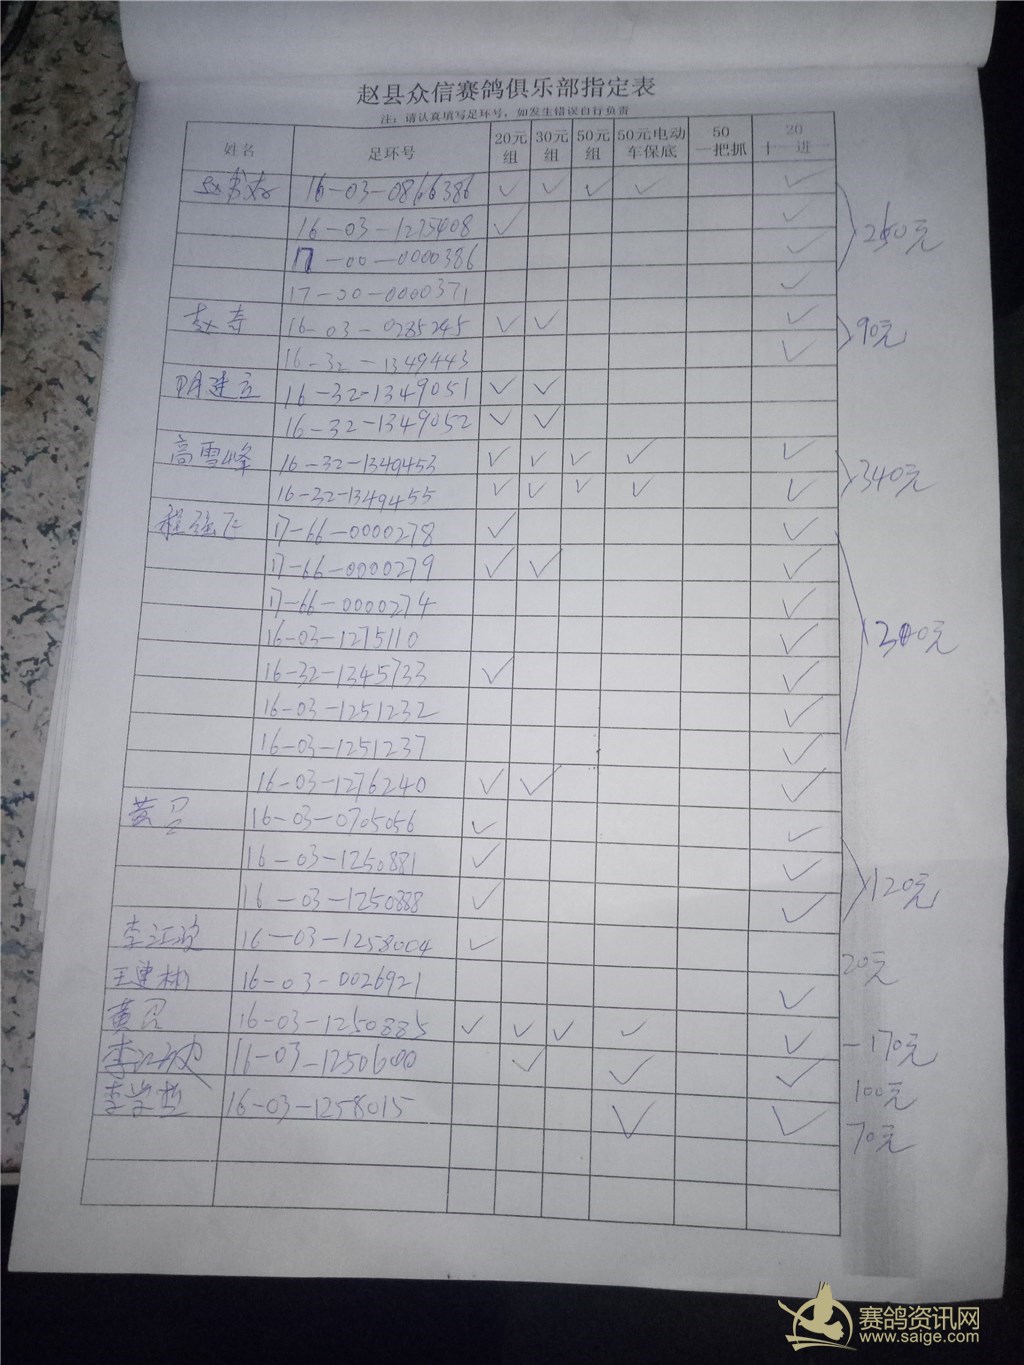 赵县众信赛鸽俱乐部指定表
注：请认真填写足环号，如发生错误自行负责
姓名 足环号 20元组 30元组 50元组 50元电动车保底 50一把抓 20十一进一
16-03-0866386 ✓ ✓ ✓ ✓ ✓
16-03-1275408 ✓ ✓ 260元
17-00-0000386 ✓
17-00-0000371 ✓
赵寺 16-03-0285245 ✓ ✓ ✓ 90元
16-32-1349443 ✓
明建立 16-32-1349051 ✓ ✓
16-32-1349052 ✓ ✓
高雪峰 16-32-1349453 ✓ ✓ ✓ ✓ ✓ 340元
16-32-1349455 ✓ ✓ ✓ ✓ ✓
程强飞 17-66-0000278 ✓ ✓
17-66-0000279 ✓ ✓ ✓
17-66-0000274 ✓
16-03-1275110 ✓ 300元
16-32-1345733 ✓ ✓
16-03-1251232 ✓
16-03-1251237 ✓
16-03-1276240 ✓ ✓ ✓
黄召 16-03-0705056 ✓ ✓
16-03-1250881 ✓ ✓ 120元
16-03-1250888 ✓ ✓
李江波 16-03-1258004 ✓ 20元
王建彬 16-03-0026921 ✓
黄召 16-03-1250885 ✓ ✓ ✓ ✓ ✓ -170元
李江波 16-03-1250600 ✓ ✓ ✓ 100元
李学哲 16-03-1258015 ✓ ✓ 70元
赛鸽资讯网
www.saige.com